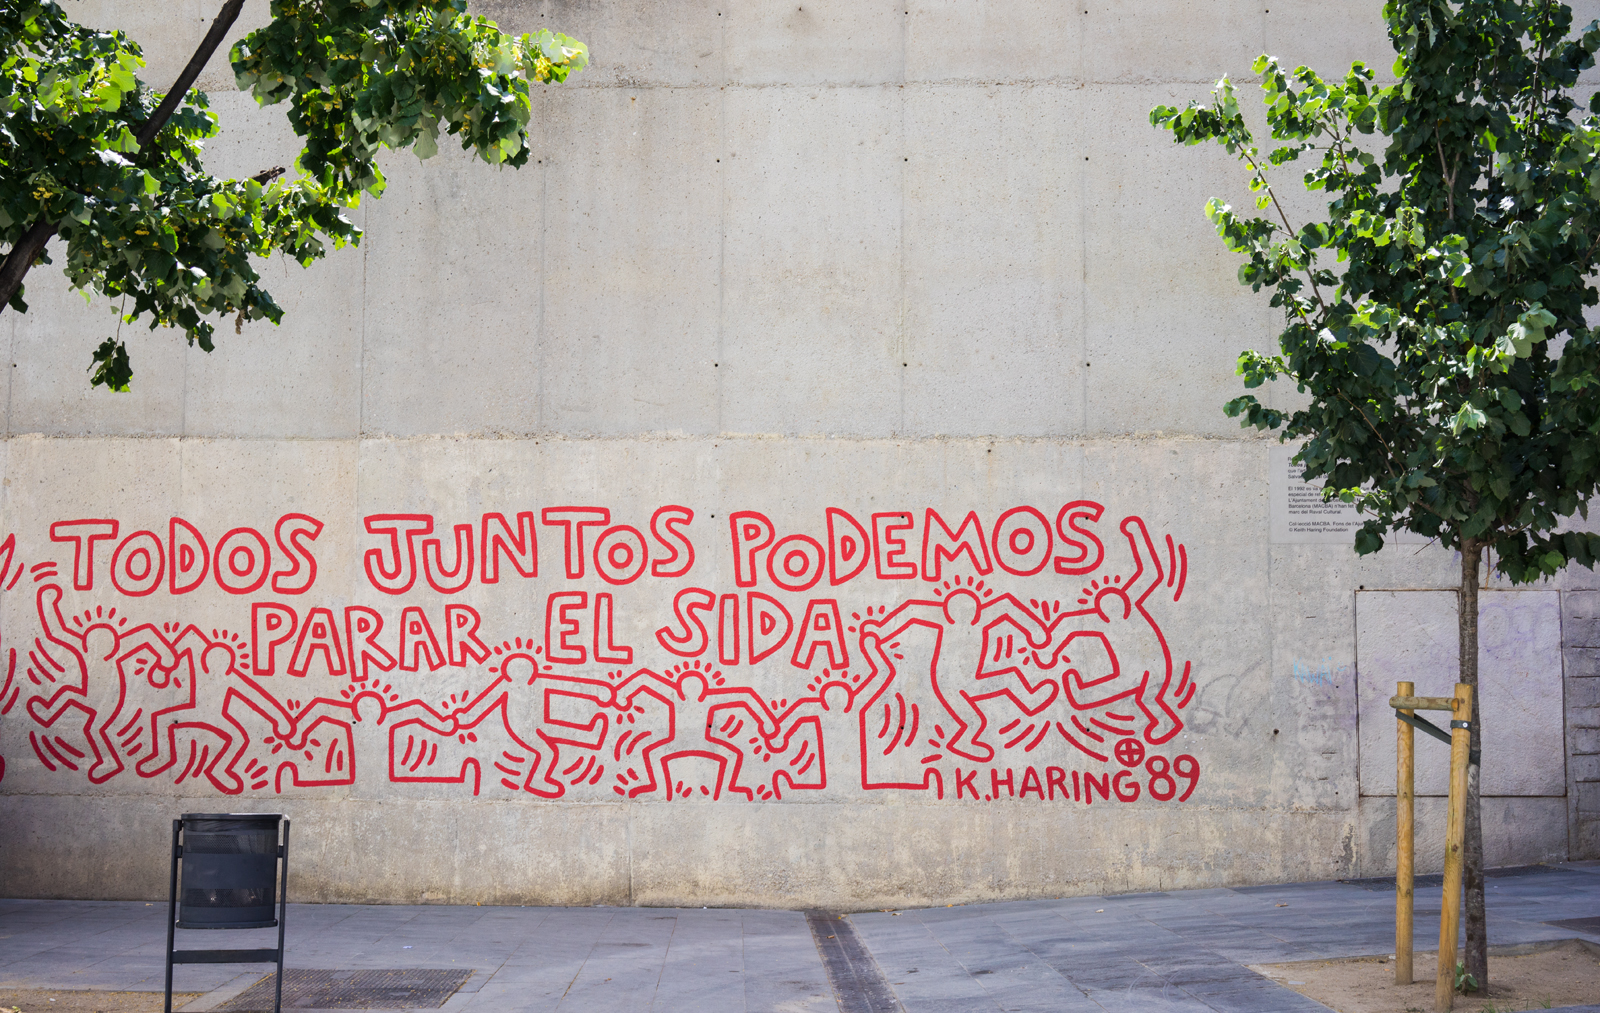 TODOS JUNTOS PODEMOS
PARAR EL SIDA
K. HARING 89
El 1992 es va
especial de
L'Ajuntament de
Barcelona (MACBA) n'han fet
marc del Raval Cultural.
Col·lecció MACBA. Fons de l'Aju
© Keith Haring Foundation